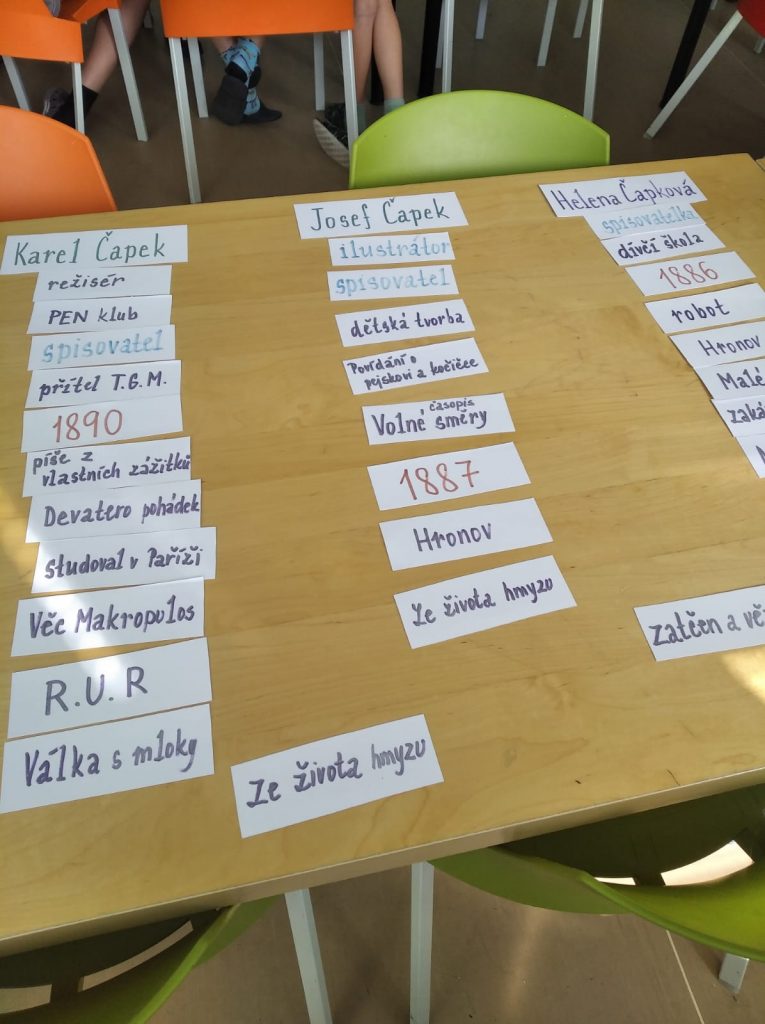 Karel Čapek
režisér
PEN klub
spisovatel
přítel T.G.M.
1890
píše z
vlastních zážitků
Devatero pohádek
studoval v Paříži
Věc Makropulos
R.U.R
Válka s mloky
Josef Čapek
ilustrátor
spisovatel
dětská tvorba
Povídání o
pejskovi a kočičce
časopis
Volné směry
1887
Hronov
Ze života hmyzu
Ze života hmyzu
Helena Čapková
spisovatelka
dívčí škola
1886
robot
Hronov
Malé
zaká
zatčen a vě